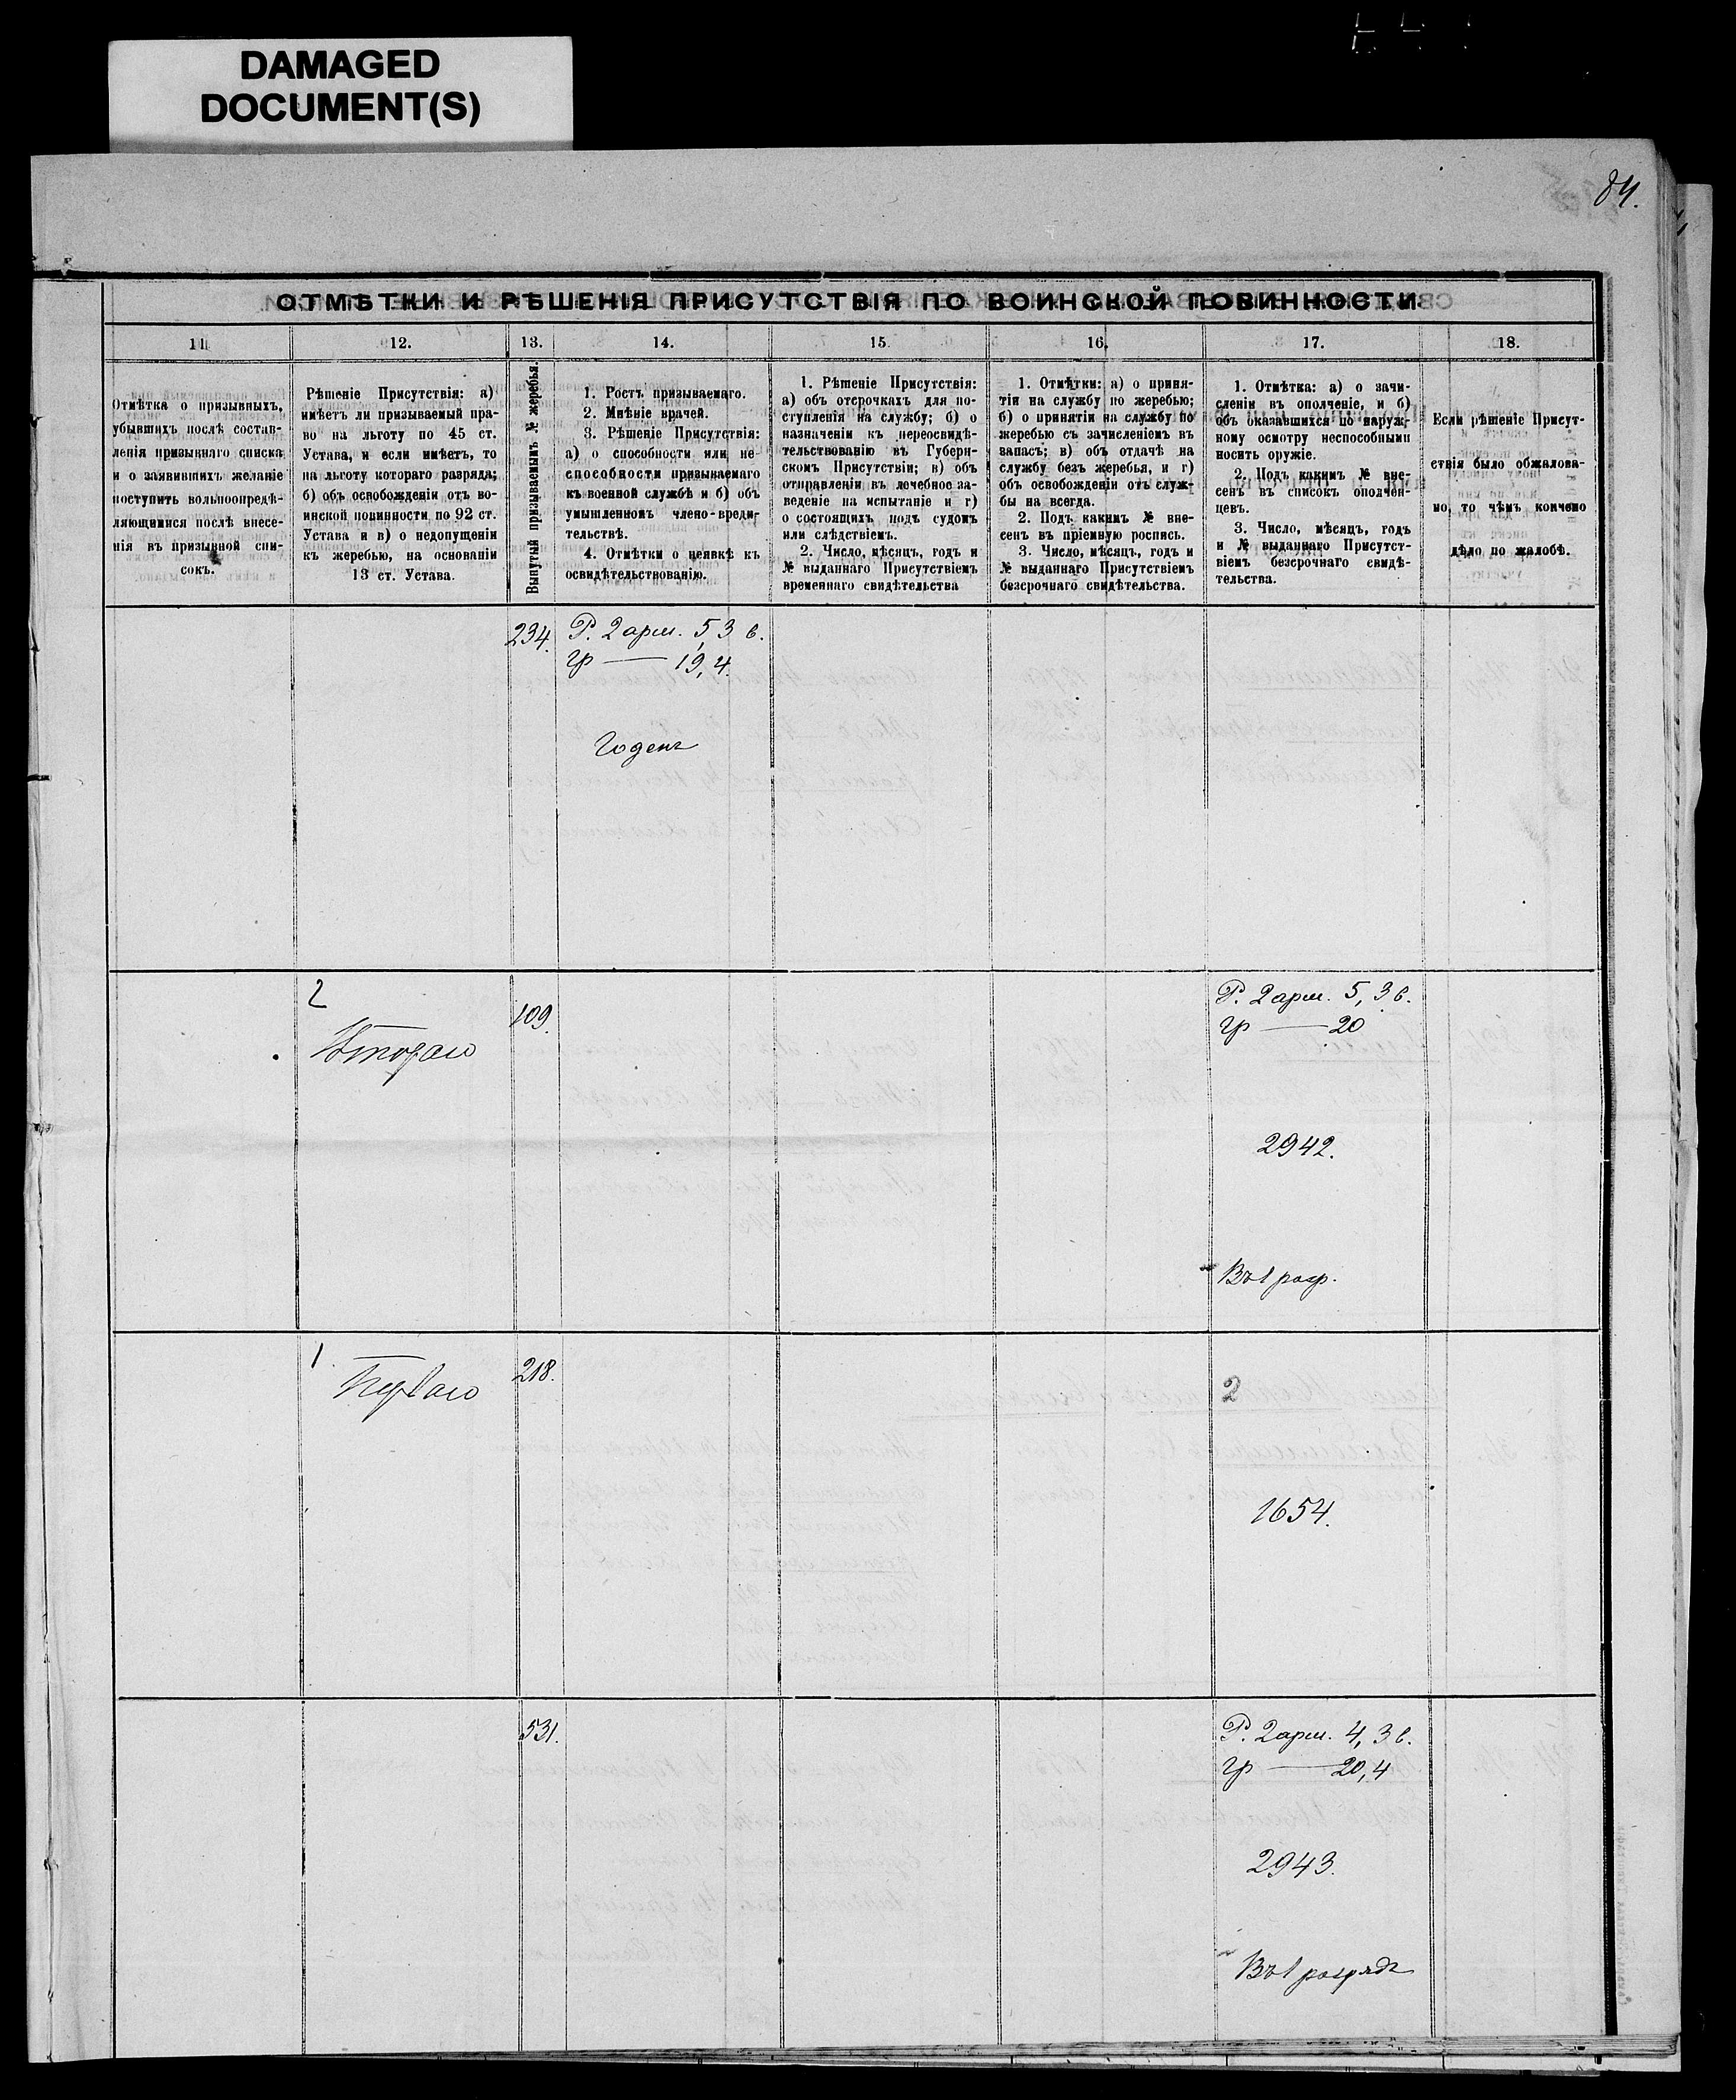 DAMAGED
DOCUMENT(S)
84.
ОТМѢТКИ И РѢШЕНІЯ ПРИСУТСТВІЯ ПО ВОИНСКОЙ ПОВИННОСТИ
11 12. 13. 14. 15. 16. 17. 18.
Отмѣтка о призывныхъ,
убывшихъ послѣ состав-
ленія призывнаго списка
и о заявившихъ желаніе
поступить вольноопредѣ-
ляющимися послѣ внесе-
нія въ призывной спи-
сокъ.
Рѣшеніе Присутствія: а)
имѣетъ ли призываемый пра-
во на льготу по 45 ст.
Устава, и если имѣетъ, то
на льготу котораго разряда;
б) объ освобожденіи отъ во-
инской повинности по 92 ст.
Устава и в) о недопущеніи
къ жеребью, на основаніи
13 ст. Устава.
Вынутый призываемымъ № жеребья.
1. Ростъ призываемаго.
2. Мнѣніе врачей.
3. Рѣшеніе Присутствія:
а) о способности или не-
способности призываемаго
къ военной службѣ и б) объ
умышленномъ члено-вреди-
тельствѣ.
4. Отмѣтки о неявкѣ къ
освидѣтельствованію.
1. Рѣшеніе Присутствія:
а) объ отсрочкахъ для по-
ступленія на службу; б) о
назначеніи къ переосвидѣ-
тельствованію въ Губерн-
скомъ Присутствіи; в) объ
отправленіи въ лечебное за-
веденіе на испытаніе и г)
о состоящихъ подъ судомъ
или слѣдствіемъ.
2. Число, мѣсяцъ, годъ и
№ выданнаго Присутствіемъ
временнаго свидѣтельства
1. Отмѣтки: а) о приня-
тіи на службу по жеребью;
б) о принятіи на службу по
жеребью съ зачисленіемъ въ
запасъ; в) объ отдачѣ на
службу безъ жеребья, и г)
объ освобожденіи отъ служ-
бы на всегда.
2. Подъ какимъ № вне-
сенъ въ пріемную роспись.
3. Число, мѣсяцъ, годъ и
№ выданнаго Присутствіемъ
безсрочнаго свидѣтельства.
1. Отмѣтка: а) о зачи-
сленіи въ ополченіе, и б)
объ оказавшихся по наруж-
ному осмотру неспособными
носить оружіе.
2. Подъ какимъ № вне-
сенъ въ списокъ ополчен-
цевъ.
3. Число, мѣсяцъ, годъ
и № выданнаго Присутст-
віемъ безсрочнаго свидѣ-
тельства.
Если рѣшеніе Присут-
ствія было обжалова-
но, то чѣмъ кончено
дѣло по жалобѣ.
234. Р. 2 арш. 5,3 в.
гр — 19,4.
Годенъ
2 109. Р. 2 арш. 5,3 в.
Втораго гр — 20
2942.
Въ 1 разр.
1 218. 2
Перваго
1654.
531. Р. 2 арш. 4,3 в.
гр — 20,4
2943.
Въ 1 разрядъ